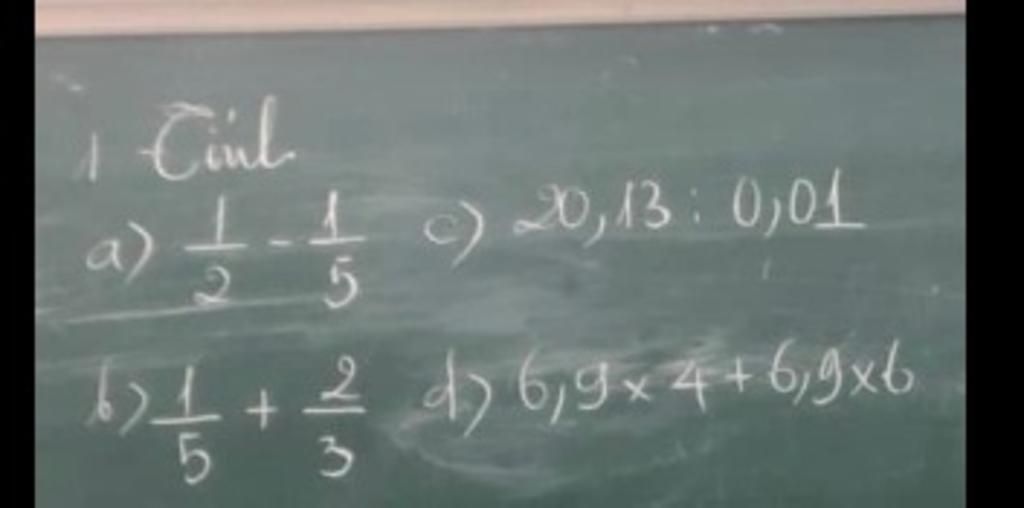 1 Tính
a) 1/2 - 1/5 c) 20,13 : 0,01
b) 1/5 + 2/3 d) 6,9 x 4 + 6,9 x 6